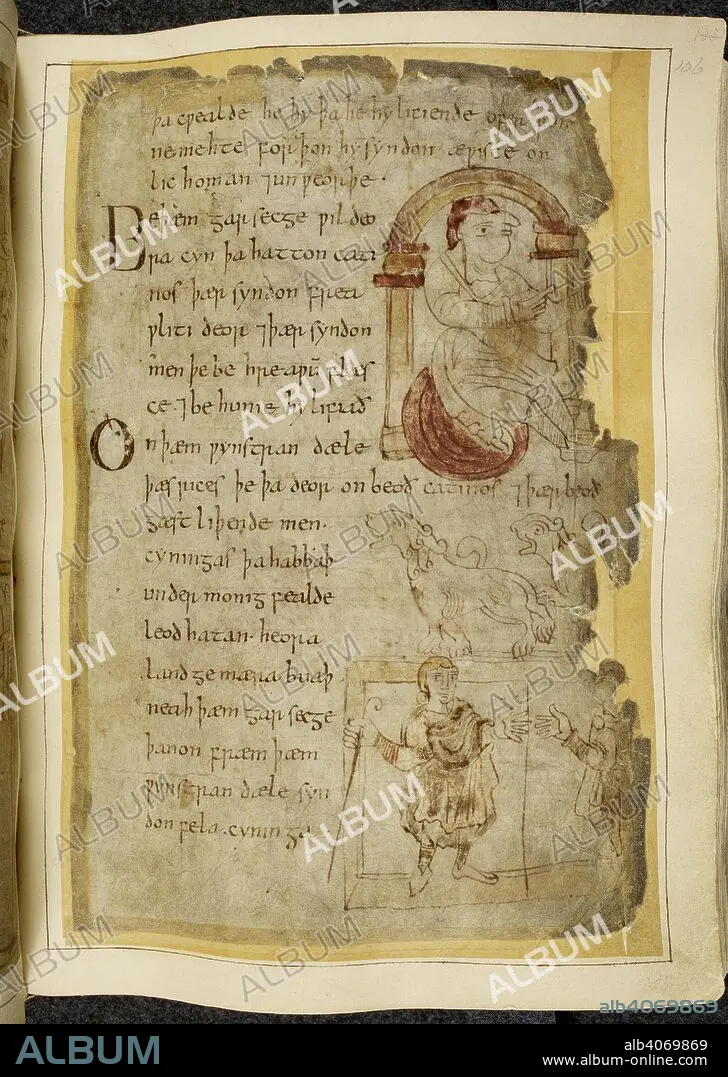 106
þa cƿealde he hy þa he hy lifiende ofer
ne mehte forþon hy syndon æƿisce on
lic homan ⁊ unƿeorþe.
Be þæm garsecge ƿildeo
ra cyn þa hatton cati
nos þær syndon
ƿliti deor ⁊ þær syndon
men þe be hreaƿū flæs
ce ⁊ be hunie hy lifiað
On þæm ƿynstran dæle
þæs rices þe þa deor on beoð catinos ⁊ þær beoð
gæst liþende men.
cyningas þa habbaþ
under monig fealde
leod hatan. heora
land gemæra buaþ
neah þæm garsecge
þanon fræm þæm
ƿynstran dæle syn
don fela. cyninga
ALBUM
alb4069869
ALBUM
alb4069869
www.album-online.com